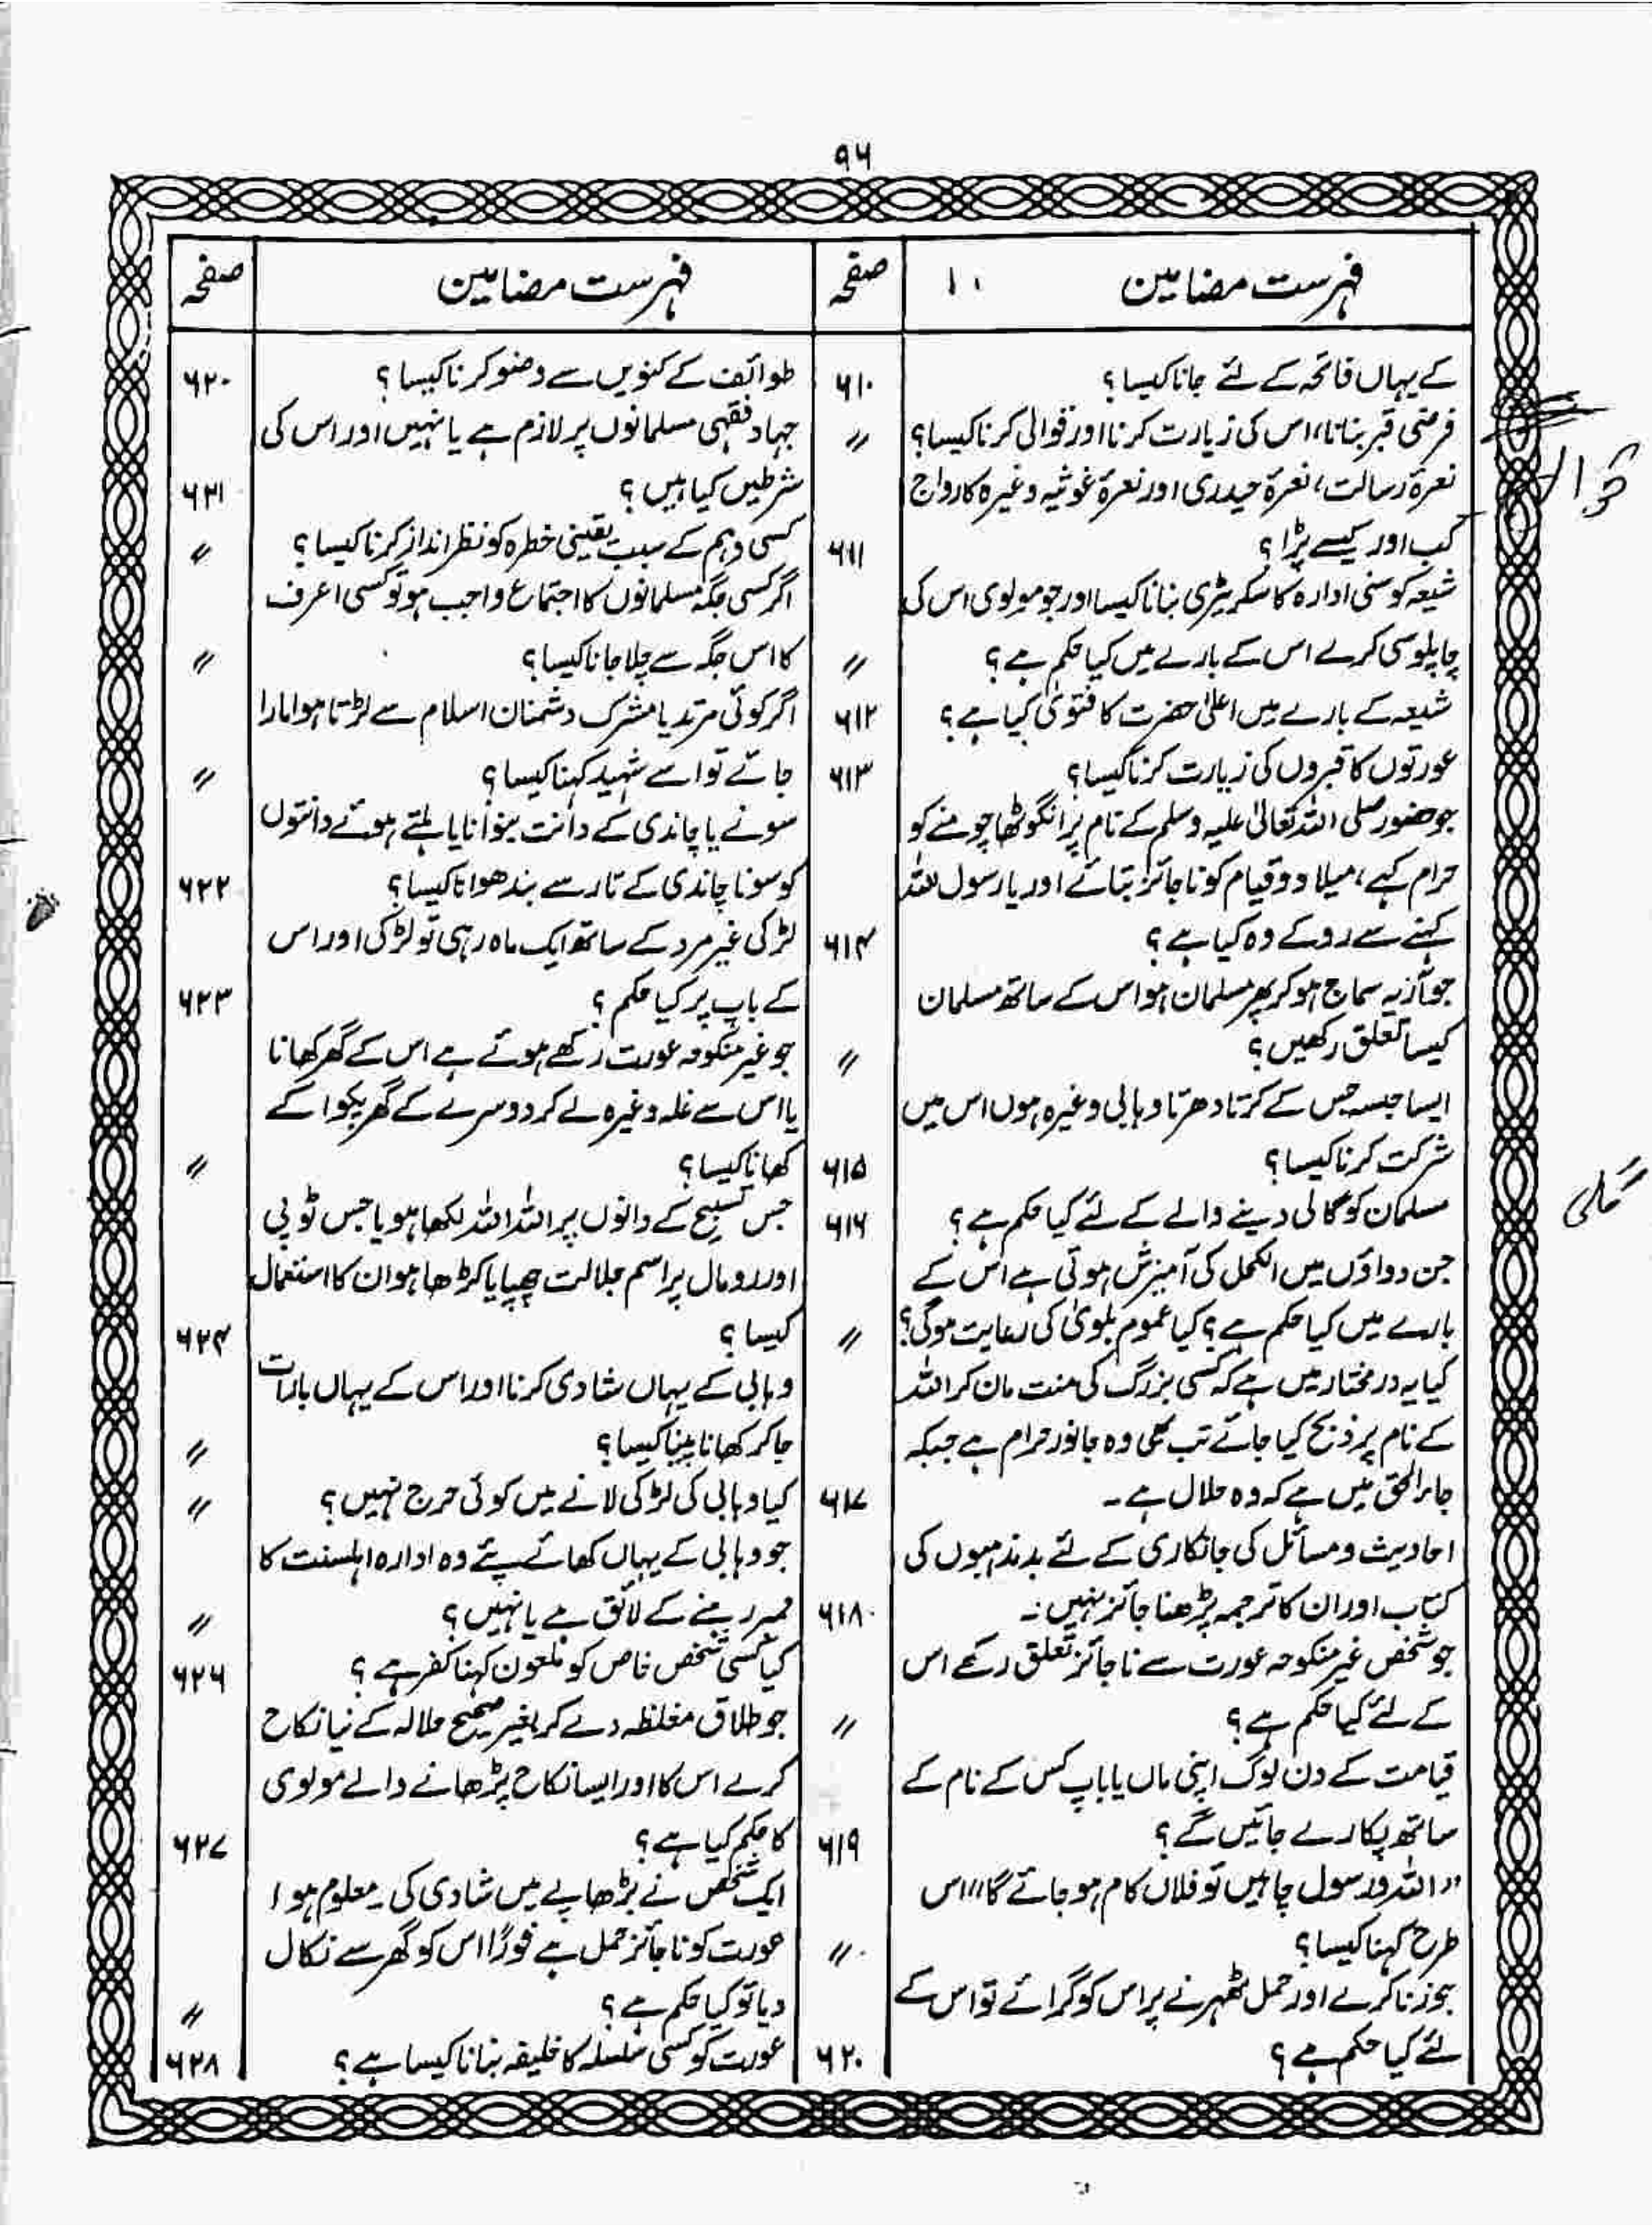 ۹۶
فہرست مضامین
صفحہ
کے یہاں فاتحہ کے لئے جانا کیسا؟ ۶۱۰
فرضی قبر بنانا، اس کی زیارت کرنا اور قوالی کرنا کیسا؟ 〃
نعرۂ رسالت، نعرۂ حیدری اور نعرۂ غوثیہ وغیرہ کا رواج
کب اور کیسے پڑا؟ ۶۱۱
شیعہ کو سنی ادارہ کا سکریٹری بنانا کیسا اور جو مولوی اس کی
چاپلوسی کرے اس کے بارے میں کیا حکم ہے؟ 〃
شیعہ کے بارے میں اعلیٰ حضرت کا فتویٰ کیا ہے؟ ۶۱۲
عورتوں کا قبروں کی زیارت کرنا کیسا؟ ۶۱۳
جو حضور صلی اللہ تعالیٰ علیہ وسلم کے نام پر انگوٹھا چومنے کو
حرام کہے، میلاد و قیام کو ناجائز بتائے اور یا رسول اللہ
کہنے سے روکے وہ کیا ہے؟ ۶۱۴
جو آریہ سماج ہو کر پھر مسلمان ہوا اس کے ساتھ مسلمان
کیسا تعلق رکھیں؟ 〃
ایسا جلسہ جس کے کرتا دھرتا وہابی وغیرہ ہوں اس میں
شرکت کرنا کیسا؟ ۶۱۵
مسلمان کو گالی دینے والے کے لئے کیا حکم ہے؟ ۶۱۶
جن دواؤں میں الکحل کی آمیزش ہوتی ہے اس کے
بارے میں کیا حکم ہے؟ کیا عموم بلویٰ کی رعایت ہوگی؟ 〃
کیا یہ در مختار میں ہے کہ کسی بزرگ کی منت مان کر اللہ
کے نام پر ذبح کیا جائے تب بھی وہ جانور حرام ہے جبکہ
جاء الحق میں ہے کہ وہ حلال ہے۔ ۶۱۷
احادیث و مسائل کی جانکاری کے لئے بدمذہبوں کی
کتاب اور ان کا ترجمہ پڑھنا جائز نہیں۔ ۶۱۸
جو شخص غیر منکوحہ عورت سے ناجائز تعلق رکھے اس
کے لئے کیا حکم ہے؟ 〃
قیامت کے دن لوگ اپنی ماں یا باپ کس کے نام کے
ساتھ پکارے جائیں گے؟ ۶۱۹
"اللہ و رسول چاہیں تو فلاں کام ہو جائے گا" اس
طرح کہنا کیسا؟ 〃
جو زنا کرے اور حمل ٹھہرنے پر اس کو گرائے تو اس کے
لئے کیا حکم ہے؟ ۶۲۰
فہرست مضامین
صفحہ
طوائف کے کنویں سے وضو کرنا کیسا؟ ۶۲۰
جہاد فقہی مسلمانوں پر لازم ہے یا نہیں اور اس کی
شرطیں کیا ہیں؟ ۶۲۱
کسی وہم کے سبب یقینی خطرہ کو نظر انداز کرنا کیسا؟ 〃
اگر کسی جگہ مسلمانوں کا اجتماع واجب ہو تو کسی اعرف
کا اس جگہ سے چلا جانا کیسا؟ 〃
اگر کوئی مرتد یا مشرک دشمنان اسلام سے لڑتا ہوا مارا
جائے تو اسے شہید کہنا کیسا؟ 〃
سونے یا چاندی کے دانت بنوانا یا ہلتے ہوئے دانتوں
کو سونا چاندی کے تار سے بندھوانا کیسا؟ ۶۲۲
لڑکی غیر مرد کے ساتھ ایک ماہ رہی تو لڑکی اور اس
کے باپ پر کیا حکم؟ ۶۲۳
جو غیر منکوحہ عورت رکھے ہوئے ہے اس کے گھر کھانا
یا اس سے غلہ وغیرہ لے کر دوسرے کے گھر پکوا کے
کھانا کیسا؟ 〃
جس تسبیح کے دانوں پر اللہ اللہ لکھا ہو یا جس ٹوپی
اور رومال پر اسم جلالت چھپا یا کڑھا ہو ان کا استعمال
کیسا؟ ۶۲۴
وہابی کے یہاں شادی کرنا اور اس کے یہاں بارات
جا کر کھانا پینا کیسا؟ 〃
کیا وہابی کی لڑکی لانے میں کوئی حرج نہیں؟ 〃
جو وہابی کے یہاں کھائے پئے وہ ادارہ اہلسنت کا
ممبر رہنے کے لائق ہے یا نہیں؟ 〃
کیا کسی شخص خاص کو ملعون کہنا کفر ہے؟ ۶۲۶
جو طلاق مغلظہ دے کر بغیر صحیح حلالہ کے نیا نکاح
کرے اس کا اور ایسا نکاح پڑھانے والے مولوی
کا حکم کیا ہے؟ ۶۲۷
ایک شخص نے بڑھاپے میں شادی کی۔ معلوم ہوا
عورت کو ناجائز حمل ہے فوراً اس کو گھر سے نکال
دیا تو کیا حکم ہے؟ 〃
عورت کو کسی سلسلہ کا خلیفہ بنانا کیسا ہے؟ ۶۲۸